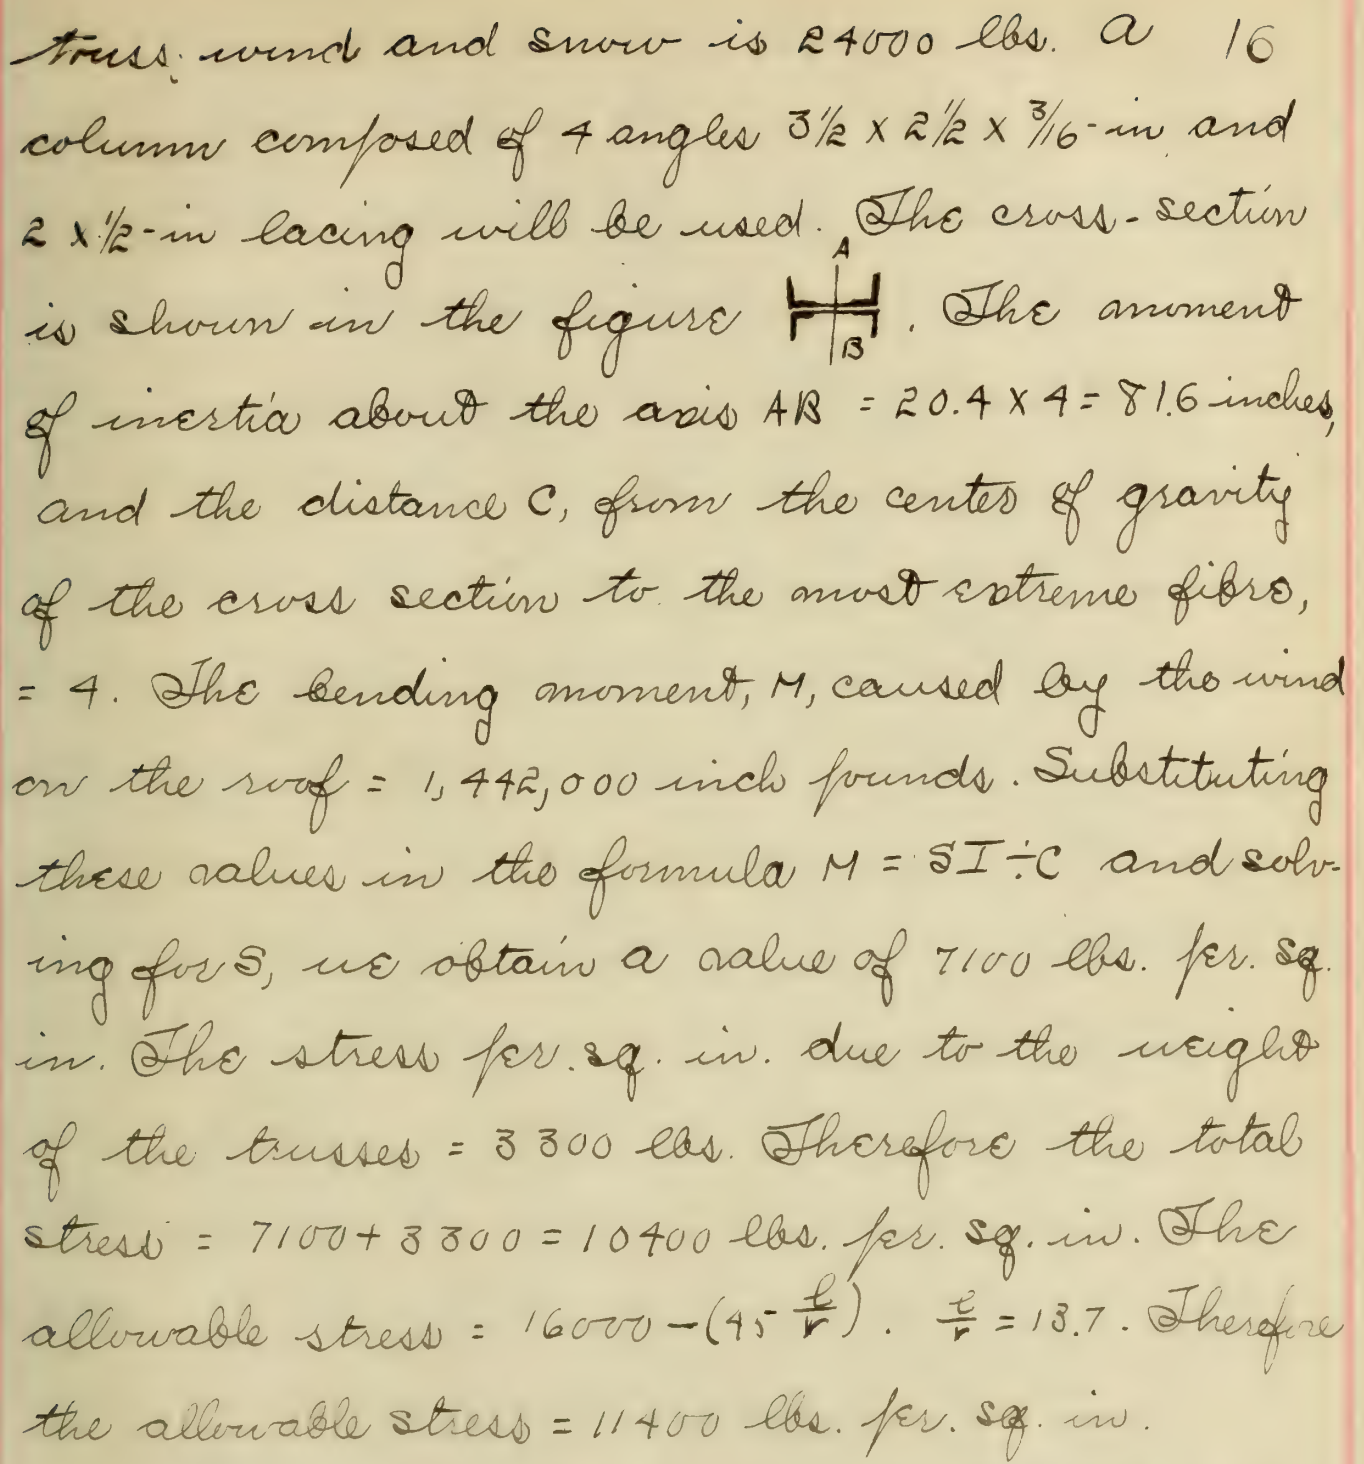 truss, wind and snow is 24000 lbs. A 16
column composed of 4 angles 3½ x 2½ x 3/16-in and
2 x ½-in lacing will be used. The cross-section
A
is shown in the figure . The moment
B
of inertia about the axis AB = 20.4 x 4 = 81.6 inches,
and the distance C, from the center of gravity
of the cross section to the most extreme fibre,
= 4. The bending moment, M, caused by the wind
on the roof = 1,442,000 inch pounds. Substituting
these values in the formula M = SI÷C and solv-
ing for S, we obtain a value of 7100 lbs. per. sq.
in. The stress per. sq. in. due to the weight
of the trusses = 3300 lbs. Therefore the total
stress = 7100 + 3300 = 10400 lbs. per. sq. in. The
allowable stress = 16000 - (45 l/r). l/r = 13.7. Therefore
the allowable stress = 11400 lbs. per. sq. in.